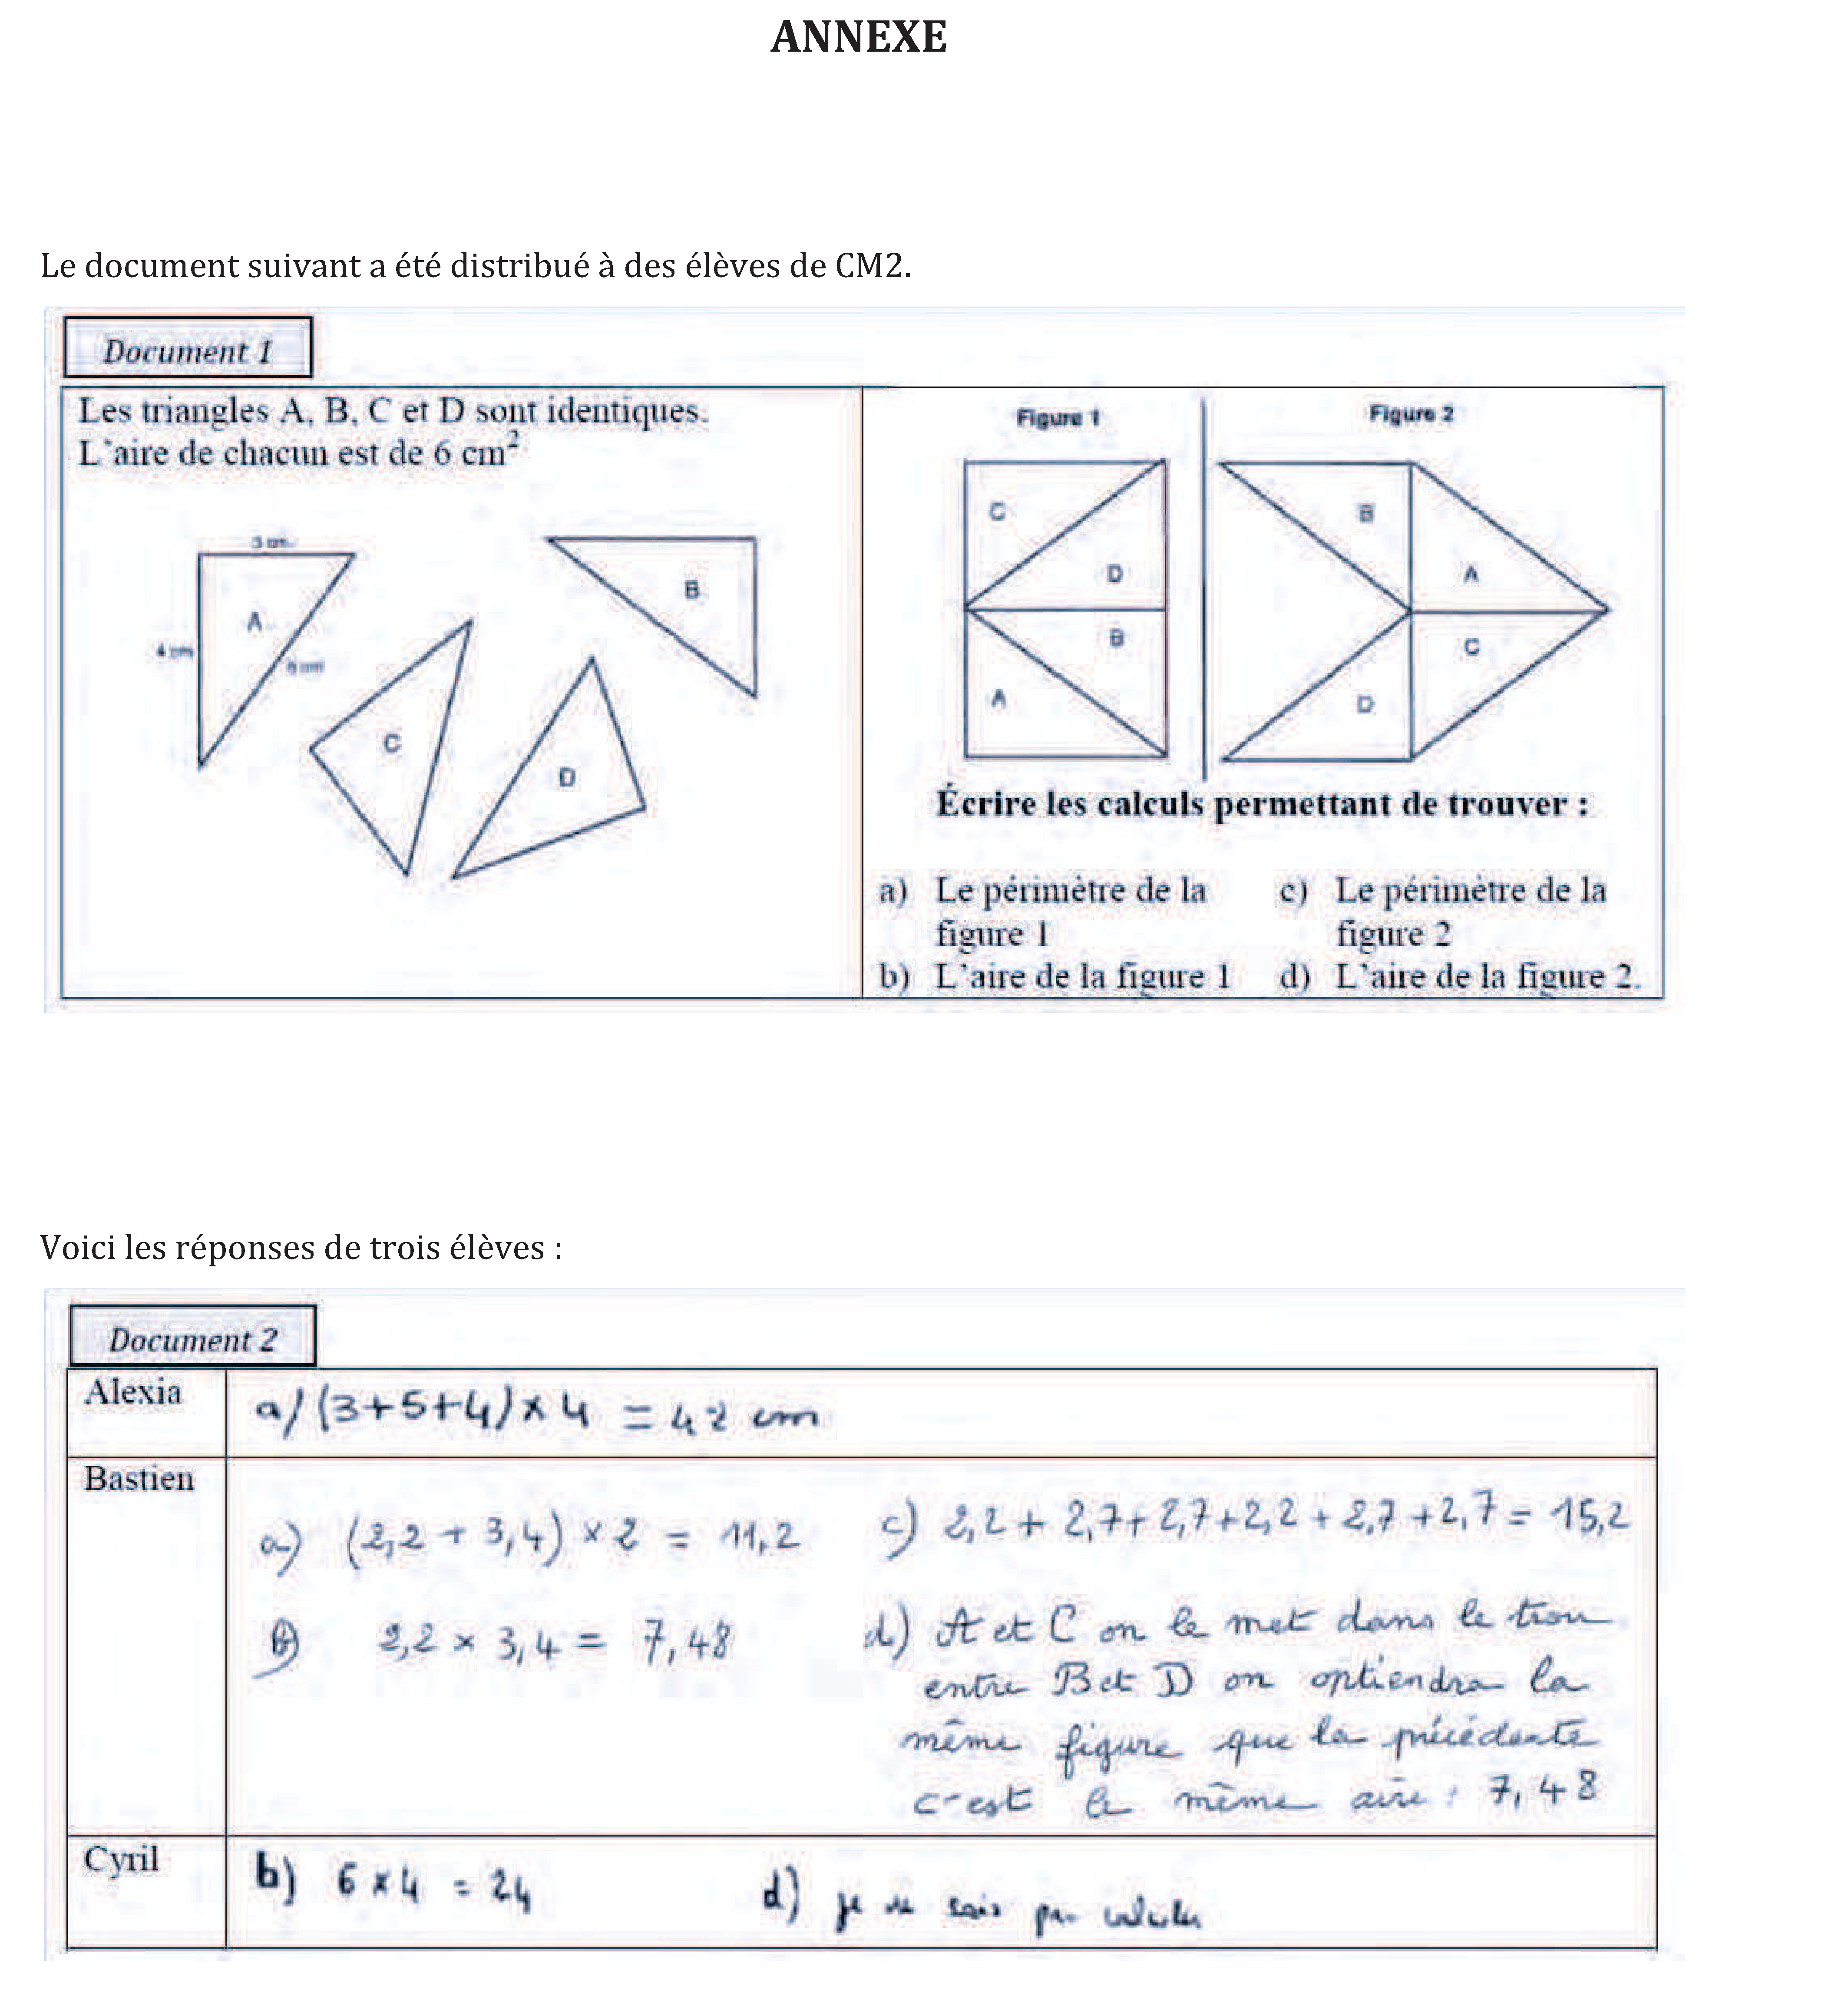 ANNEXE
Le document suivant a été distribué à des élèves de CM2.
Document 1
Les triangles A, B, C et D sont identiques.
L'aire de chacun est de 6 cm²
3 cm
A
4 cm
B
C
D
Figure 1
C
D
B
A
Figure 2
B
A
C
D
Écrire les calculs permettant de trouver :
a) Le périmètre de la
figure 1
b) L'aire de la figure 1
c) Le périmètre de la
figure 2
d) L'aire de la figure 2.
Voici les réponses de trois élèves :
Document 2
Alexia
a/ (3+5+4) x 4 = 42 cm
Bastien
a) (2,2 + 3,4) x 2 = 11,2
b) 2,2 x 3,4 = 7,48
c) 2,2 + 2,7 + 2,7 + 2,2 + 2,7 + 2,7 = 15,2
d) A et C on le met dans le trou
entre B et D on optiendra la
même figure que la précédente
c'est le même aire : 7,48
Cyril
b) 6 x 4 = 24
d) je ne sais pas calculer